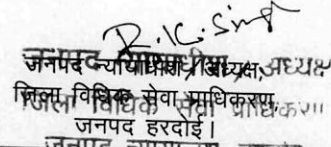 R.K. Singh
जनपद न्यायाधीश/अध्यक्ष,
जिला विधिक सेवा प्राधिकरण,
जनपद हरदोई।